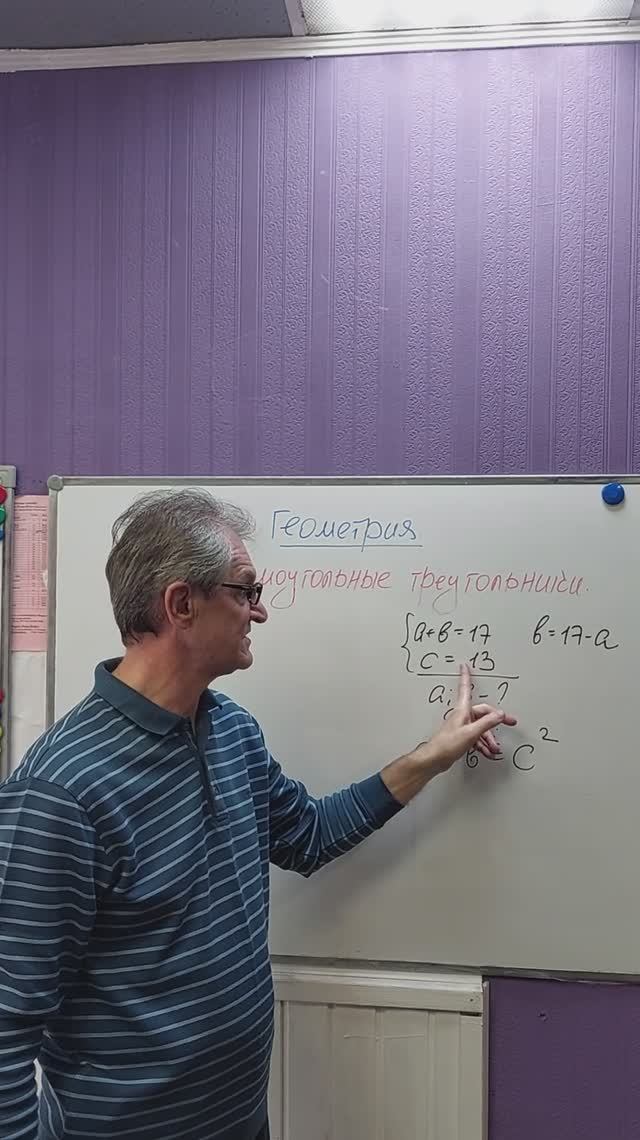 Геометрия
моугольные треугольники.
a+b=17 b=17-a
c=13
a; - ?
b = c²